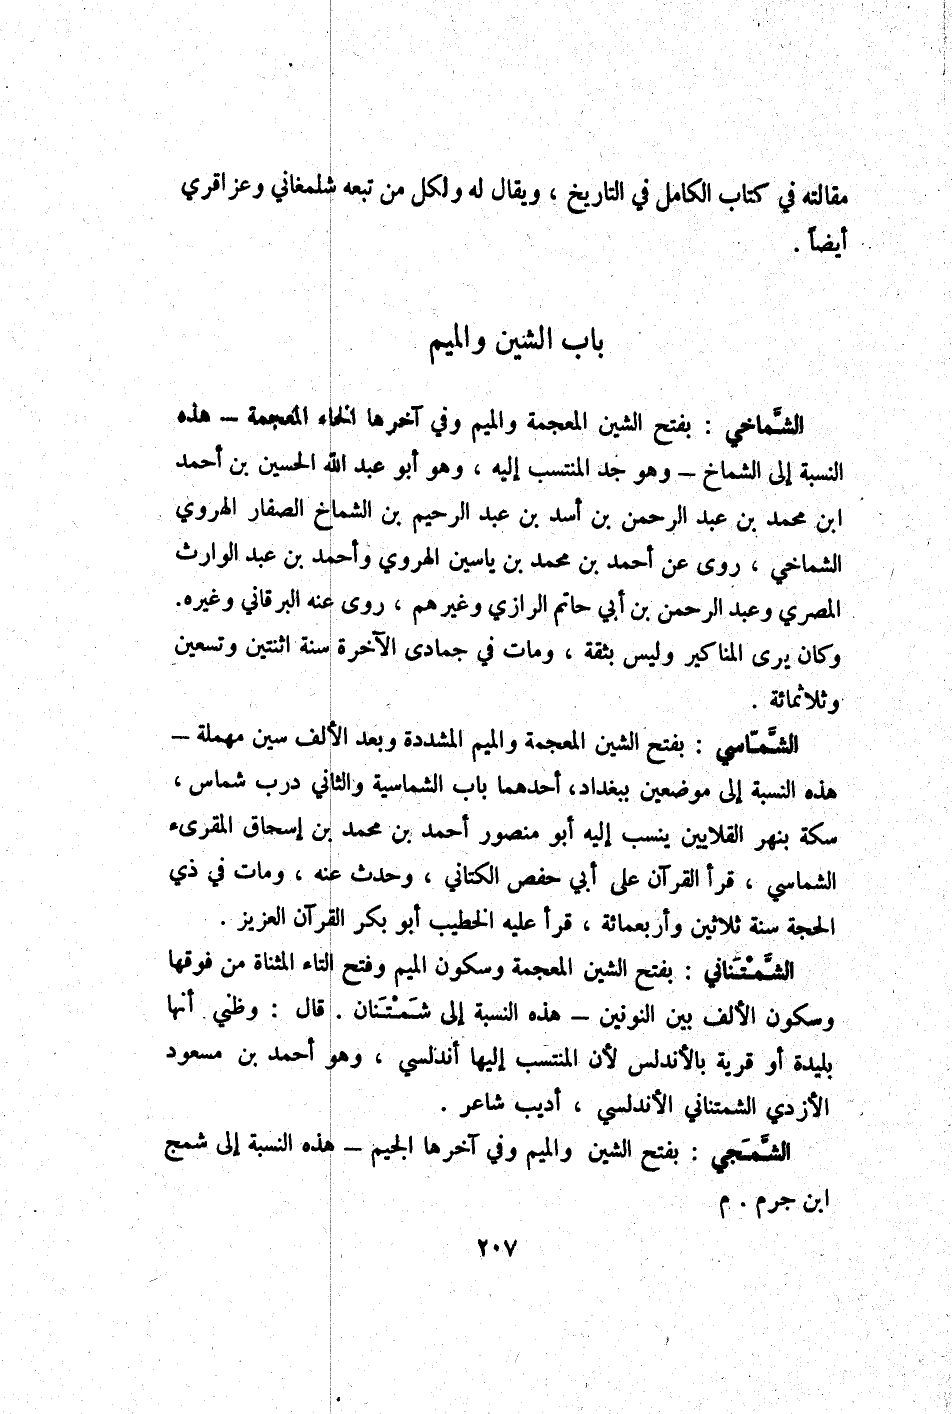 مقالته في كتاب الكامل في التاريخ ، ويقال له ولكل من تبعه شلمغاني وعزاقري
أيضاً .
باب الشين والميم
الشَّماخي : بفتح الشين المعجمة والميم وفي آخرها الخاء المعجمة – هذه
النسبة إلى الشماخ – وهو جد المنتسب إليه ، وهو أبو عبد الله الحسين بن أحمد
ابن محمد بن عبد الرحمن بن أسد بن عبد الرحيم بن الشماخ الصفار الهروي
الشماخي ، روى عن أحمد بن محمد بن ياسين الهروي وأحمد بن عبد الوارث
المصري وعبد الرحمن بن أبي حاتم الرازي وغيرهم ، روى عنه البرقاني وغيره.
وكان يرى المناكير وليس بثقة ، ومات في جمادى الآخرة سنة اثنتين وتسعين
وثلاثمائة .
الشَّمّاسي : بفتح الشين المعجمة والميم المشددة وبعد الألف سين مهملة –
هذه النسبة إلى موضعين ببغداد، أحدهما باب الشماسية والثاني درب شماس ،
سكة بنهر القلايين ينسب إليه أبو منصور أحمد بن محمد بن إسحاق المقرىء
الشماسي ، قرأ القرآن على أبي حفص الكتاني ، وحدث عنه ، ومات في ذي
الحجة سنة ثلاثين وأربعمائة ، قرأ عليه الخطيب أبو بكر القرآن العزيز .
الشَّمْتَناني : بفتح الشين المعجمة وسكون الميم وفتح التاء المثناة من فوقها
وسكون الألف بين النونين – هذه النسبة إلى شَمْتَنان . قال : وظني أنها
بليدة أو قرية بالأندلس لأن المنتسب إليها أندلسي ، وهو أحمد بن مسعود
الأزدي الشمتناني الأندلسي ، أديب شاعر .
الشَّمَجي : بفتح الشين والميم وفي آخرها الجيم – هذه النسبة إلى شمج
ابن جرم . م
٢٠٧